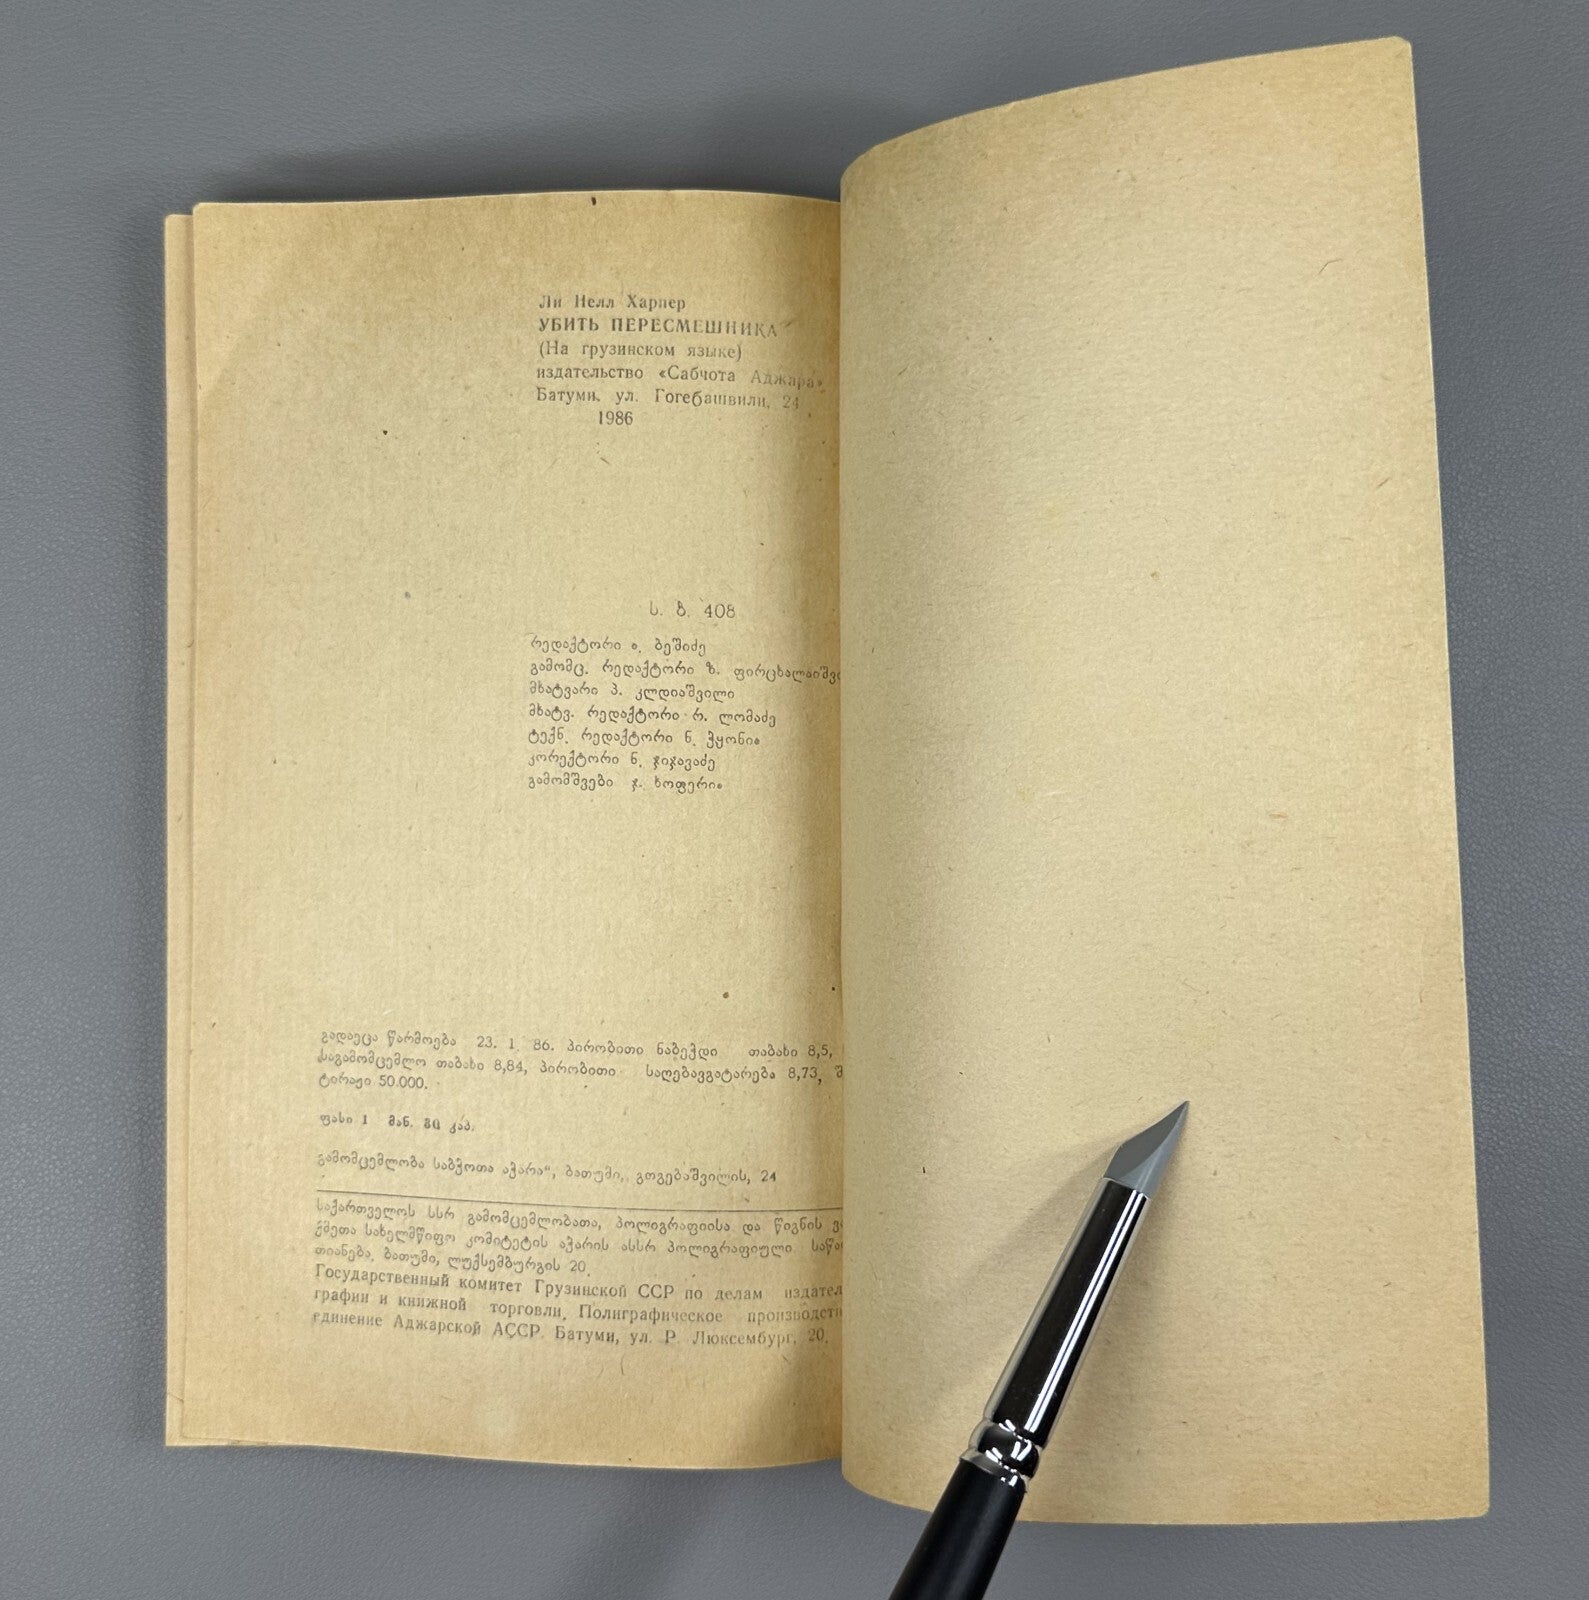 Ли Нелл Харпер
УБИТЬ ПЕРЕСМЕШНИКА
(На грузинском языке)
издательство «Сабчота Аджара»
Батуми, ул. Гогебашвили, 24
1986
ს. ბ. 408
რედაქტორი ა. ბეშიძე
გამომც. რედაქტორი ზ. ფირცხალაიშვი
მხატვარი პ. კლდიაშვილი
მხატვ. რედაქტორი რ. ლომაძე
ტექნ. რედაქტორი ნ. ჭყონია
კორექტორი ნ. ჯიჯავაძე
გამომშვები ჯ. ხოფერია
გადაეცა წარმოება 23. 1 86. პირობითი ნაბეჭდი თაბახი 8,5,
საგამომცემლო თაბახი 8,84, პირობითი საღებავგატარება 8,73, შ
ტირაჟი 50.000.
ფასი 1 მან. 80 კაპ.
გამომცემლობა საბჭოთა აჭარა“, ბათუმი, გოგებაშვილის, 24
საქართველოს სსრ გამომცემლობათა, პოლიგრაფიისა და წიგნის ვა
ქმეთა სახელმწიფო კომიტეტის აჭარის ასსრ პოლიგრაფიული საწა
თიანება, ბათუმი, ლუქსემბურგის 20.
Государственный комитет Грузинской ССР по делам издател
графии и книжной торговли, Полиграфическое производств
единение Аджарской АССР. Батуми, ул. Р. Люксембург, 20.